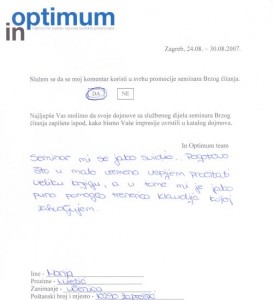 in optimum
Zagreb, 24.08. – 30.08.2007.
Slažem se da se moj komentar koristi u svrhu promocije seminara Brzog čitanja.
DA NE
Najljepše Vas molimo da svoje dojmove sa službenog dijela seminara Brzog
čitanja zapišete ispod, kako bismo Vaše impresije uvrstili u katalog dojmova.
In Optimum team
Seminar mi se jako svidio. Pogotovo
što u malo vremena uspijem pročitati
veliku knjigu, a u tome mi je jako
puno pomogao trenerica Klaudija kojoj
zahvaljujem.
Ime - Marija
Prezime -
Zanimanje - učenica
Poštanski broj i mjesto -